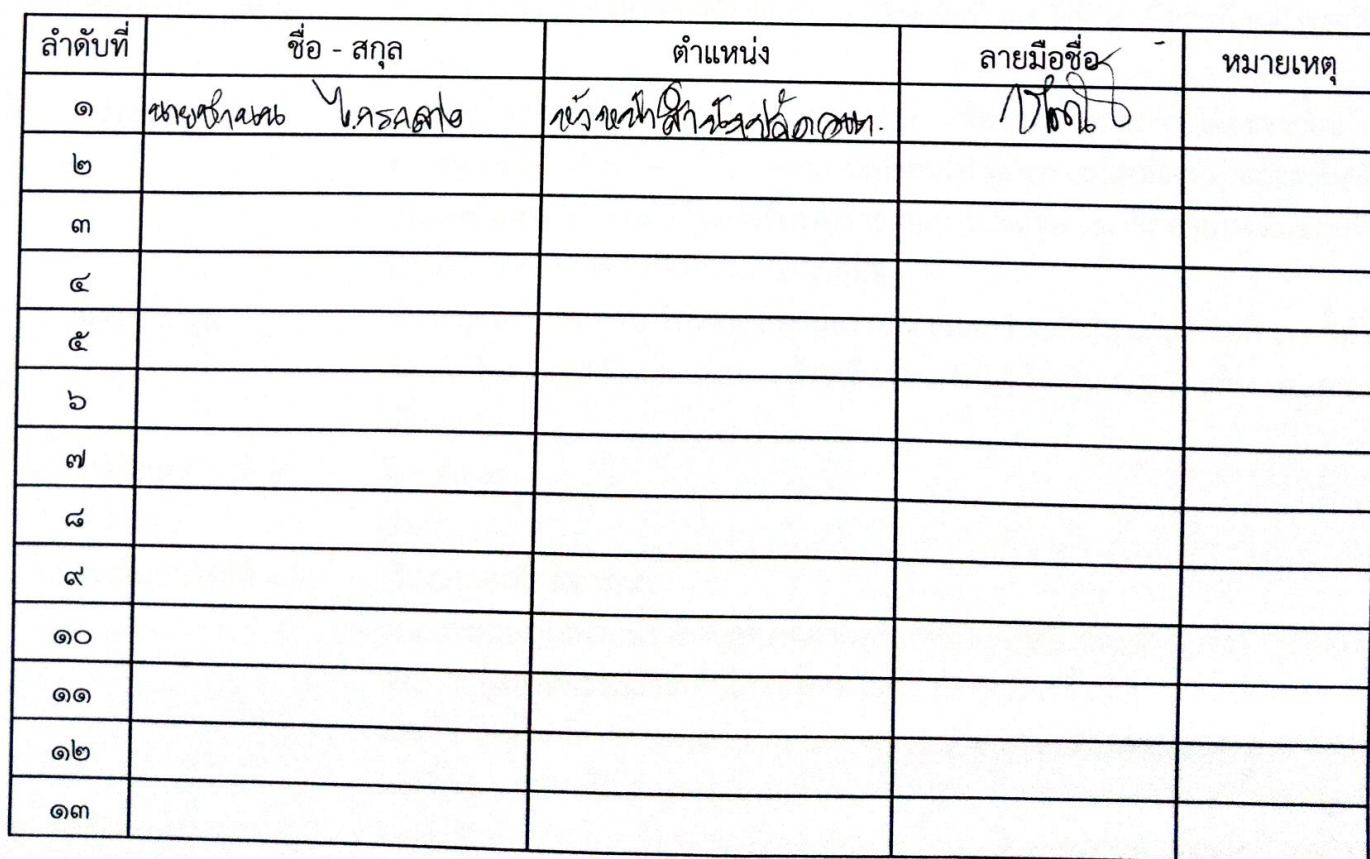 ลำดับที่ ชื่อ - สกุล ตำแหน่ง ลายมือชื่อ หมายเหตุ
๑ นายชำนาน หัวหน้าสำนักปลัด อบต.
๒
๓
๔
๕
๖
๗
๘
๙
๑๐
๑๑
๑๒
๑๓